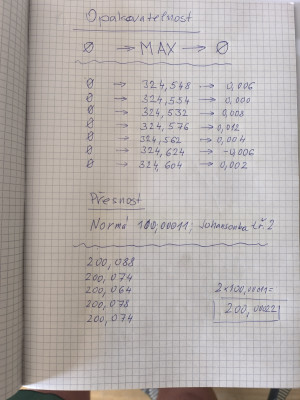 Opakovatelnost
0 → MAX → 0
0 → 324,548 → 0,006
0 → 324,534 → 0,000
0 → 324,532 → 0,008
0 → 324,576 → 0,012
0 → 324,562 → 0,004
0 → 324,624 → -0,006
0 → 324,604 → 0,002
Přesnost
Norma 100,00011; Johansonka tř. 2
200,088
200,074
200,064
200,078
200,074
2×100,00011=
200,00022